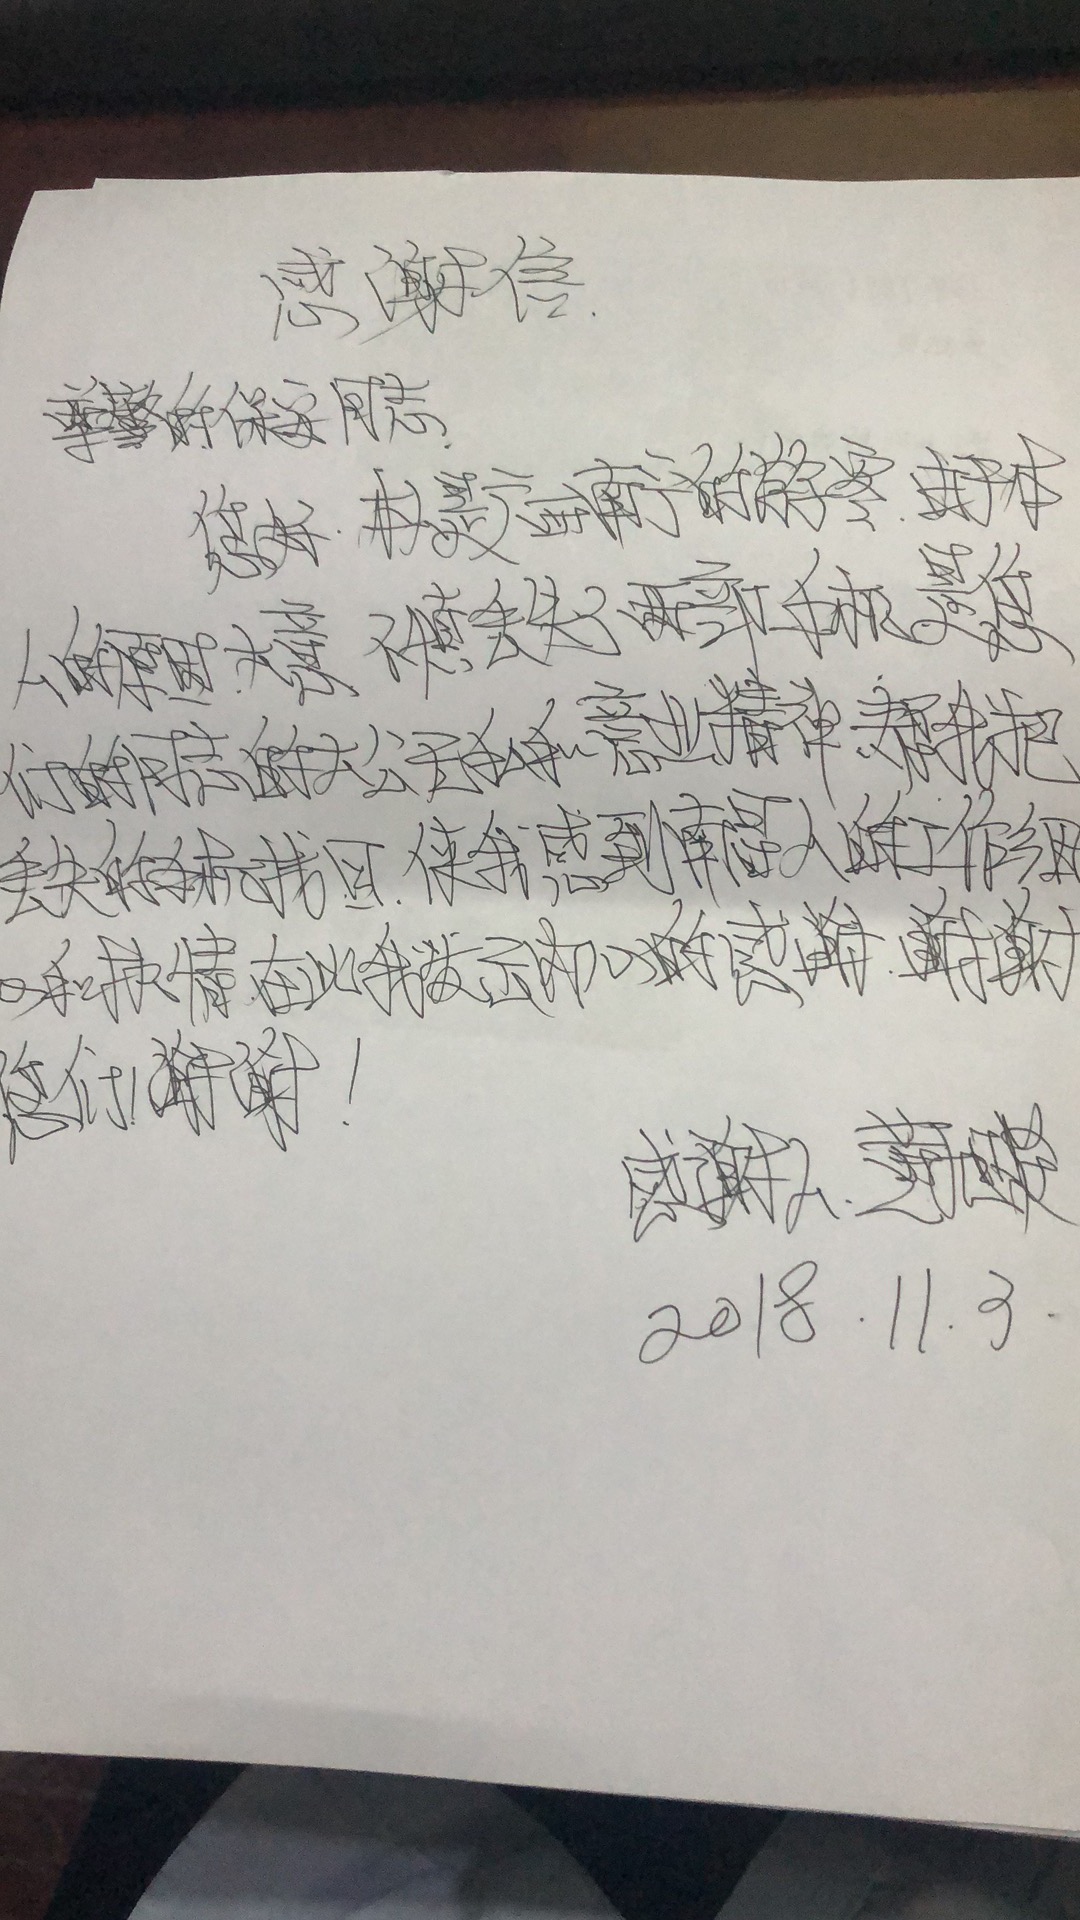 感谢信.
尊敬的保安同志.
您好.本是广西南宁的游客.由于本
人的原因.大意 不慎丢失了两部手机是您
们的同志的大公无私和意业精神.帮我把
丢失的手机找回.使我感到南宁人的工作细
心和热情.在此我发云内心的感谢.谢谢
您们!谢谢!
感谢人.
2018.11.3.